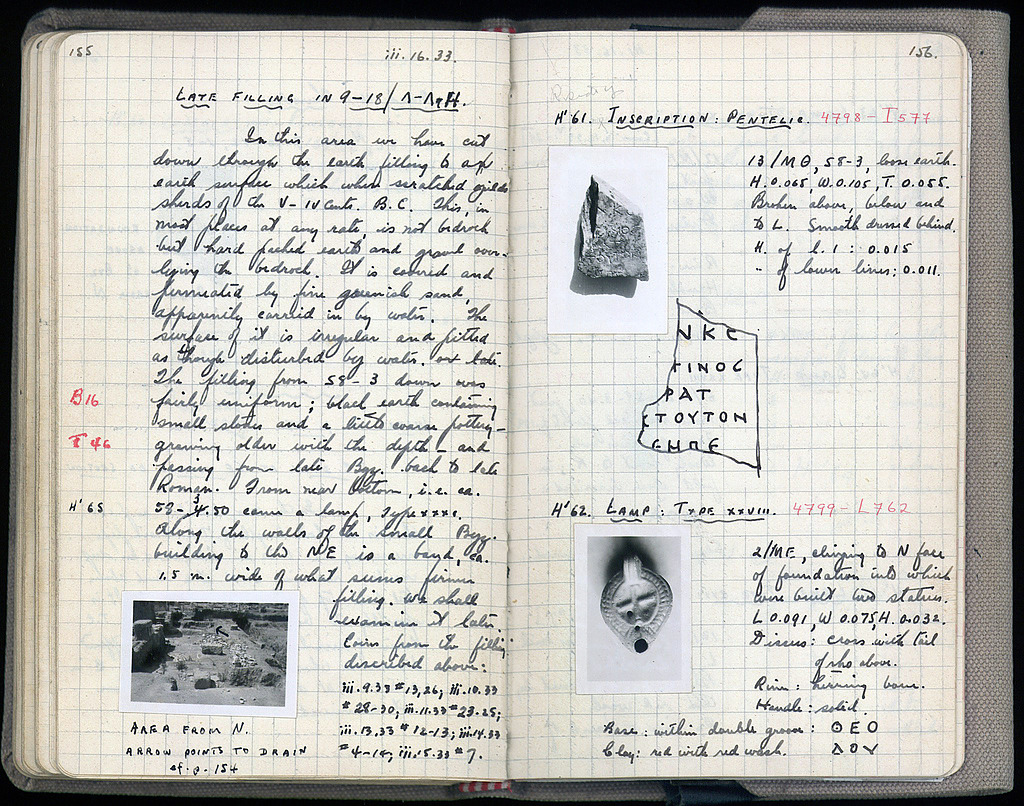 155
iii.16.33.
LATE FILLING IN 9-18/Λ-ΛΗ.
In this area we have cut
down through the earth filling to an
earth surface which when scratched yields
sherds of the V-IV Cents. B.C. This, in
most places at any rate, is not bedrock
but hard packed earth and gravel over-
lying the bedrock. It is covered and
permeated by fine greenish sand,
apparently carried in by water. The
surface of it is irregular and pitted
as though disturbed by water.
The filling from 58-3 down was
B16
fairly uniform; black earth containing
small stones and a little coarse pottery -
Σ 46
growing older with the depth - and
passing from late Byz. back to late
Roman. From near bottom, i.e. ca.
H'65
52-4.50 came a lamp, Type XXXI.
Along the walls of the small Byz.
building to the NE is a band, ca.
1.5 m. wide of what seems firmer
filling. We shall
examine it later.
Coins from the filling
described above:
iii.9.33 #13,26; iii.10.33
#28-30; iii.11.33 #23-25;
iii.13.33 #12-13; iii.14.33
#4-14; iii.15.33 #7.
AREA FROM N.
ARROW POINTS TO DRAIN
cf. p. 154
156.
H'61. INSCRIPTION: PENTELIC. 4798 - I 577
13/ΜΘ, 58-3, loose earth.
H. 0.065, W. 0.105, T. 0.055.
Broken above, below and
to L. Smooth dressed behind.
H. of l. 1: 0.015
" of lower lines: 0.011.
ΝΚΕ
ΤΙΝΟϹ
ΡΑΤ
ΤΟΥΤΟΝ
ϹΗΜΕ
H'62. LAMP: TYPE XXVIII. 4799 - L 762
2/ΜΕ, clinging to N face
of foundation into which
were built two statues.
L 0.091, W 0.075, H. 0.032.
Discus: cross with tail
of rho above.
Rim: herring bone.
Handle: solid.
Base: within double groove: ΘΕΟ
ΔΟΥ
Clay: red with red wash.